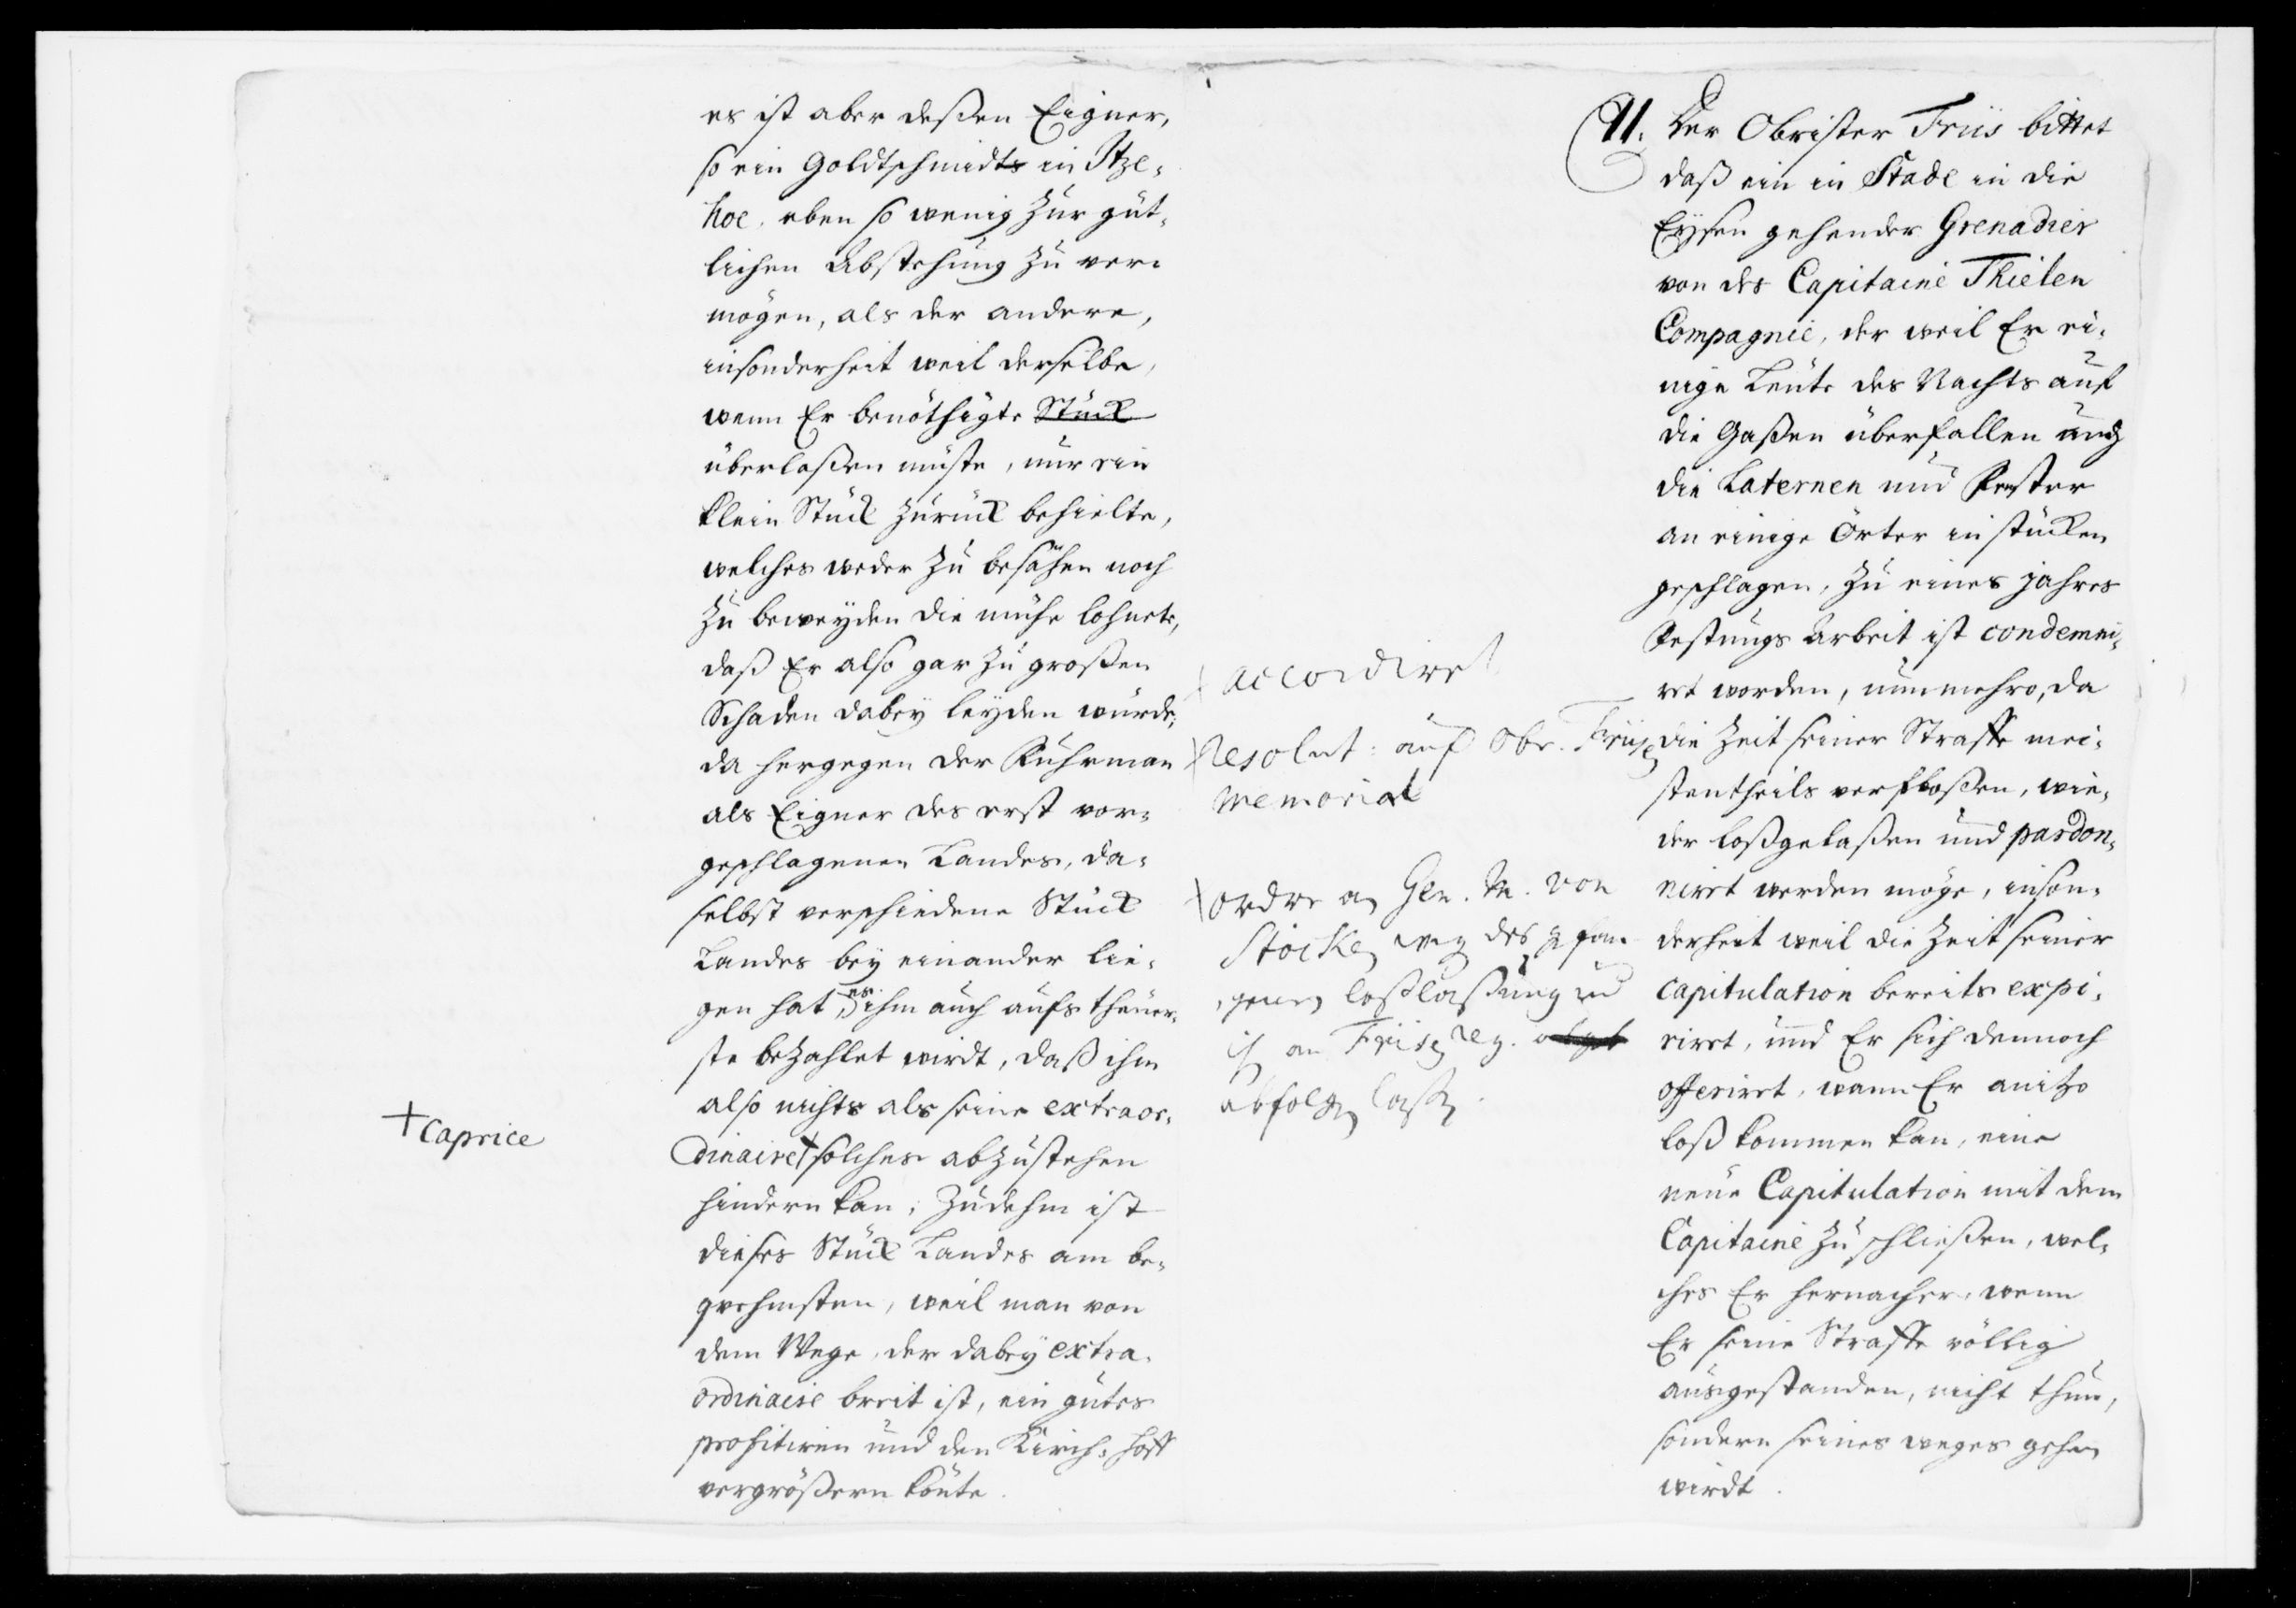 es ist aber deßen Eigner,
so ein Goldtschmidts in Itze¬
hoe, eben so wenig zur güt¬
lichen Abstehung zu ver¬
mögen, als der andere,
insonderheit weil derselbe,
wenn Er benöthigte Stück
überlaßen müste, nur ein
klein Stück zurück behielte,
welches weder zu besähen noch
zu beweyden die mühe lohnete,
daß Er also gar zu großen
Schaden dabey leyden würde,
da hergegen der Fuhrman
als Eigner des erst vor¬
geschlagenen Landes, da¬
selbst verschiedene Stück
Landes bey einander lie¬
gen hat, es ihm auch aufs theuer¬
ste bezahlet wirdt, daß ihm
also nichts als seine extraor¬
dinaire + solches abzustehen
hindern kan; Zudehm ist
dieses Stück Landes am be¬
qvehmsten, weil man von
dem Wege, der dabey extra¬
ordinaire breit ist, ein gutes
profitiren und den Kirch-hoff
vergrößern könte.
+ Caprice
accordiret
Resolut: auf Obr. Friis
memorial
ordre an Gen. M. von
Stöcken weg des gefan¬
genen loßlaßung und
an Friis abgeb
abfolgen laßen.
11. Der Obrister Friis bittet
daß ein in Stade in die
Eysen gehender Grenadier
von des Capitaine Thielen
Compagnie, der weil Er ei¬
nige Leute des Nachts auf
die Gaßen überfallen und
die Laternen und Fenster
an einige Örter in stücken
geschlagen, zu eines jahres
Festungs Arbeit ist condemni¬
ret worden, nunmehro, da
die Zeit seiner Straffe mei¬
stentheils verfloßen, wie¬
der loßgelaßen und pardon¬
niret werden möge, inson¬
derheit weil die Zeit seiner
capitulation bereits expi¬
riret, und Er sich dennoch
offeriret, wann Er anitzo
loß kommen kan, eine
neue Capitulation mit dem
Capitaine zu schließen, wel¬
ches Er hernacher, wenn
Er seine Straffe völlig
ausgestanden, nicht thun,
sondern seines weges gehen
wirdt.